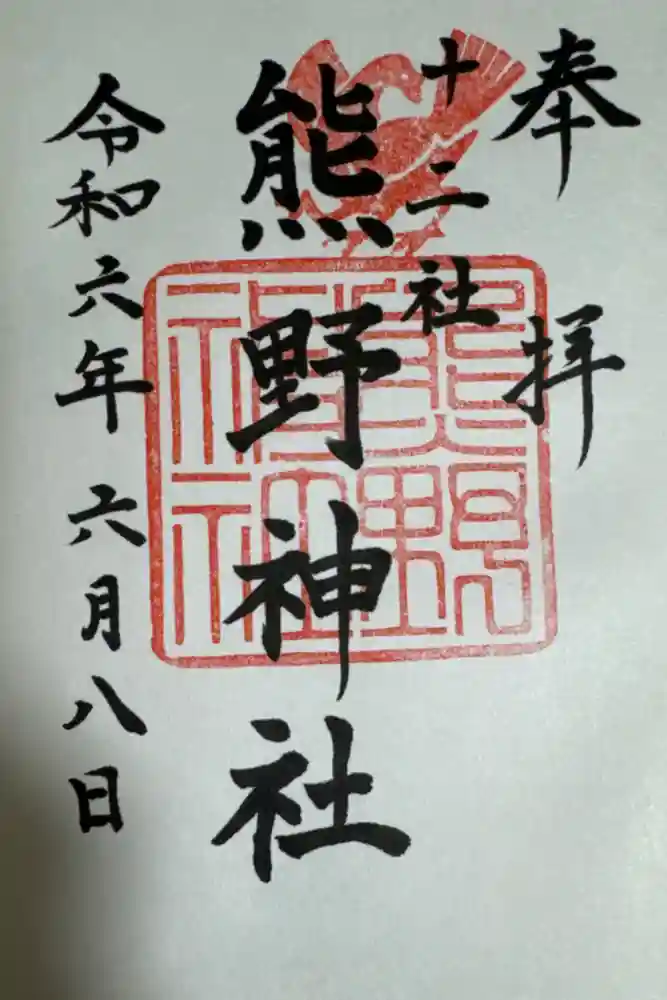 奉拝
十二社
熊野神社
令和六年六月八日
熊野神社